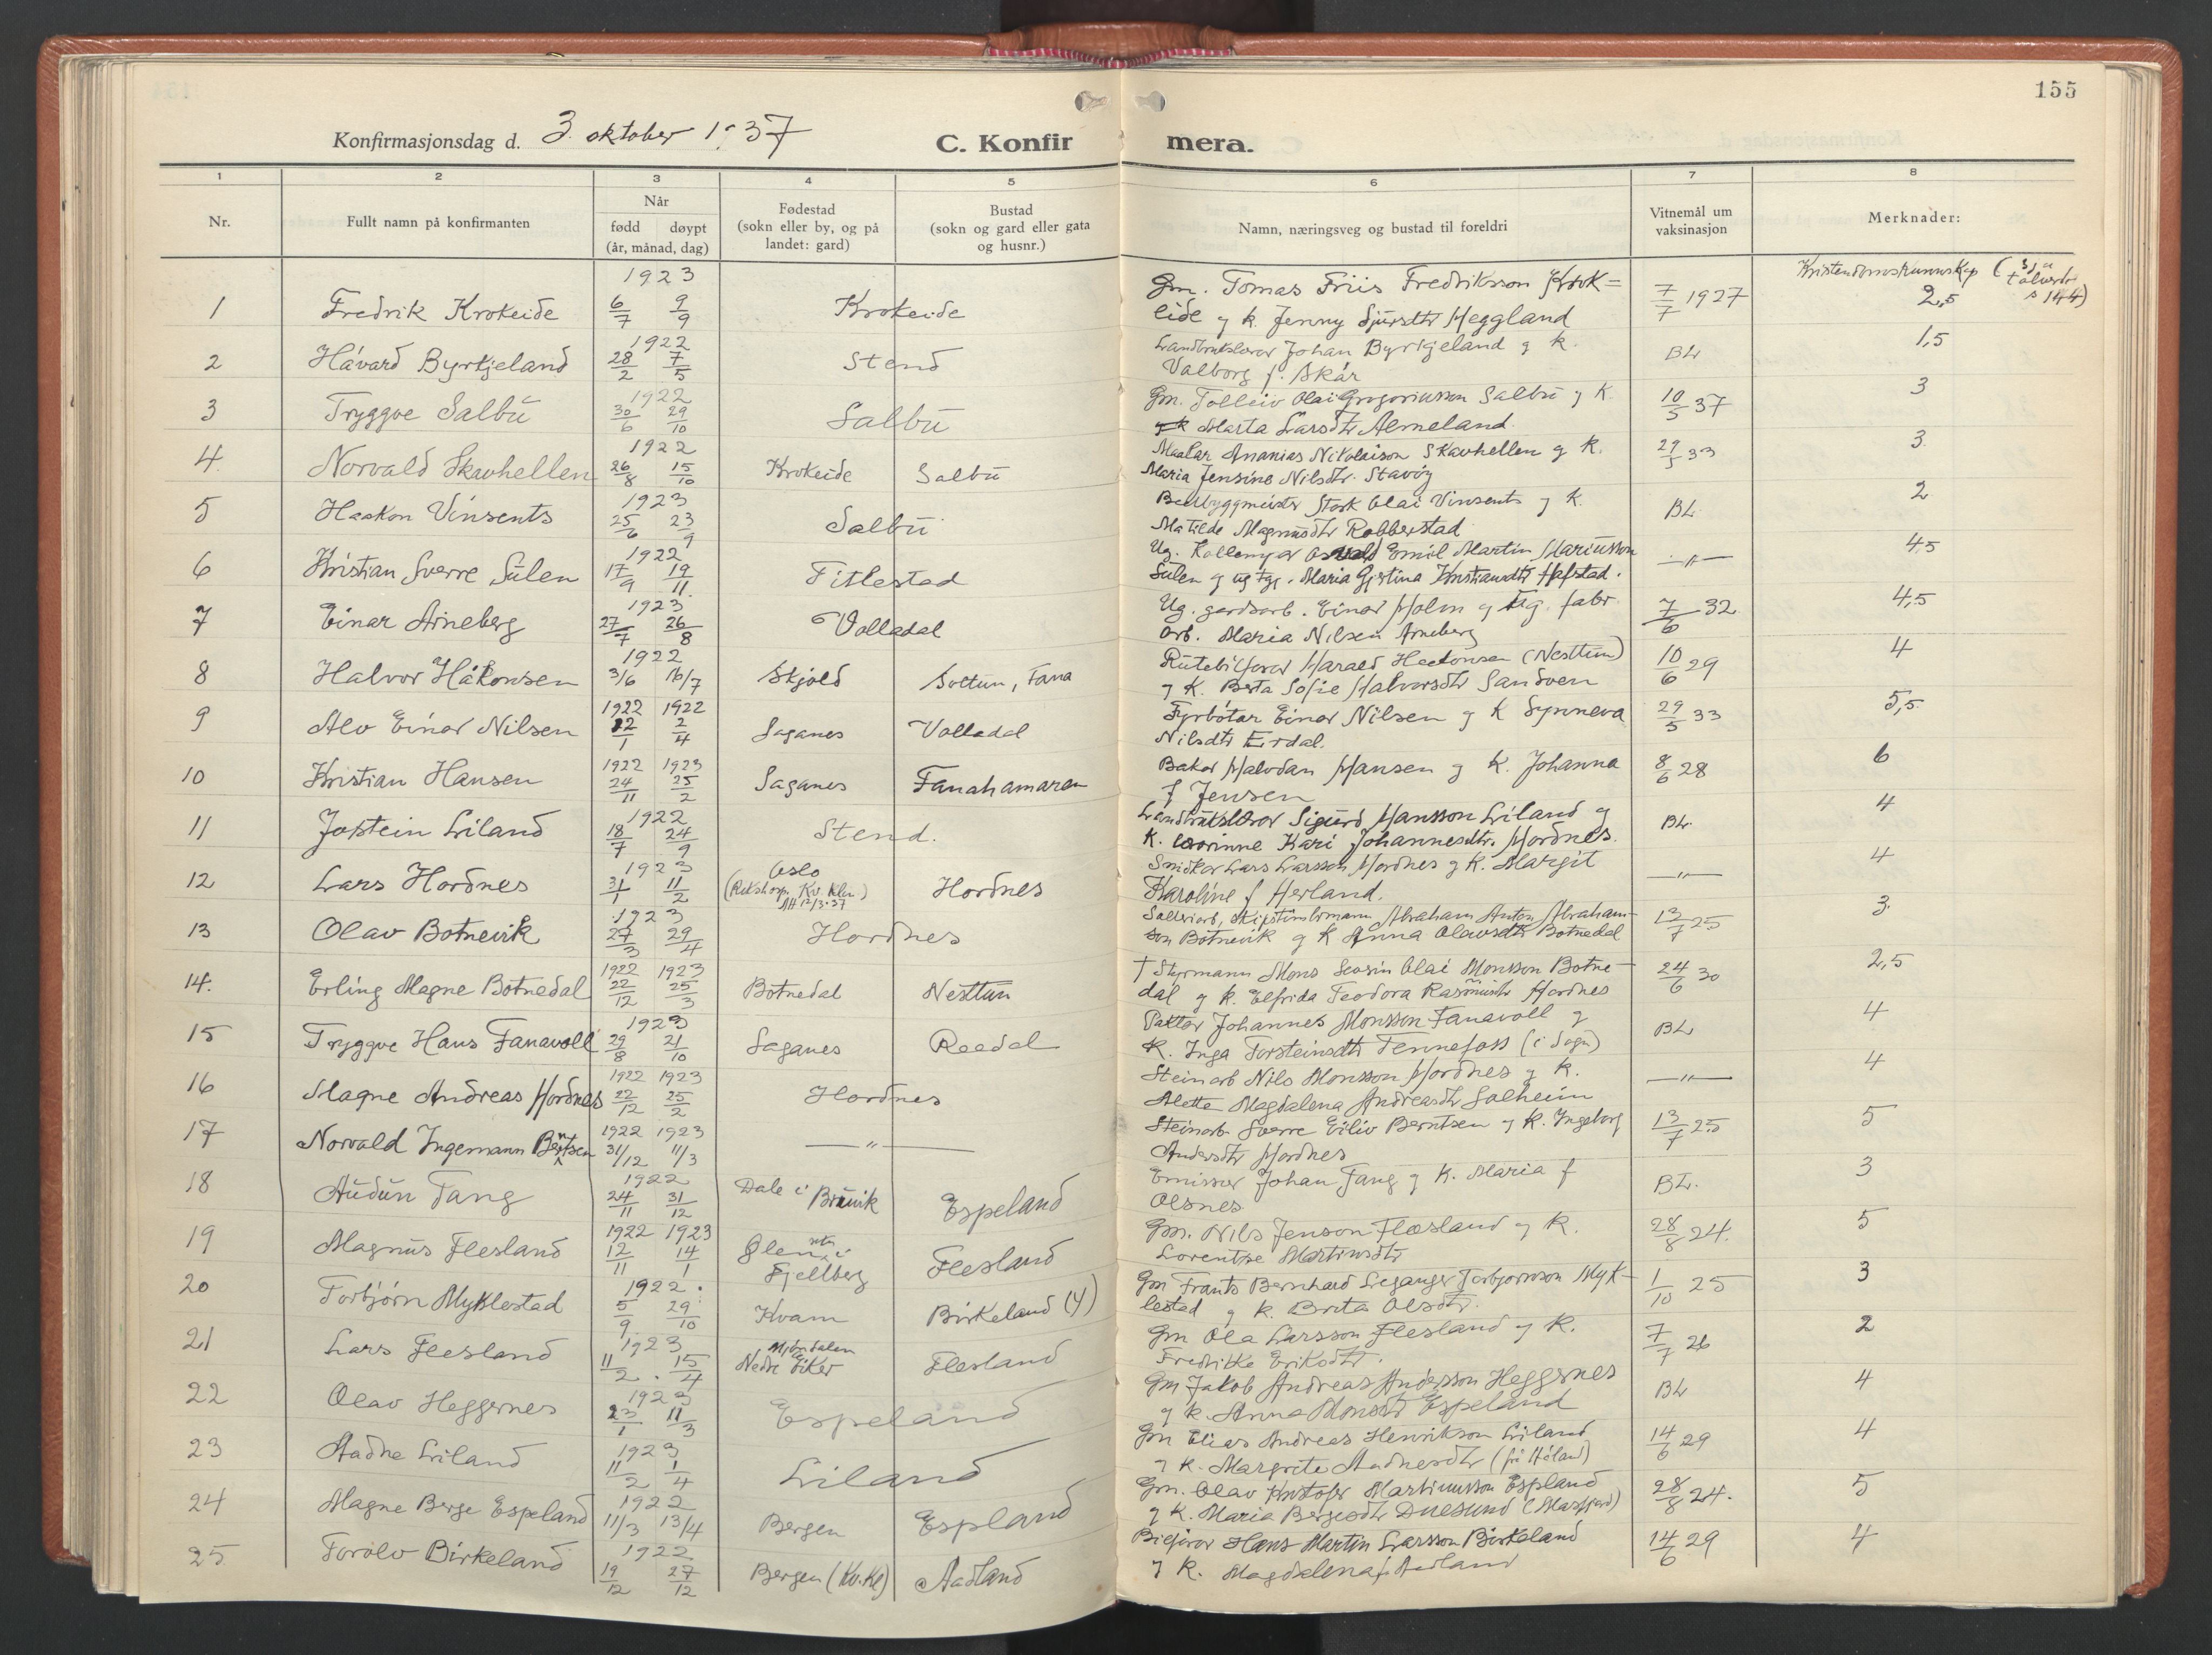 155
Konfirmasjonsdag d. 3. oktober 1937
C. Konfirmera.
1 2 3 4 5 6 7 8
Nr. Fullt namn på konfirmanten Når Fødestad Bustad Namn, næringsveg og bustad til foreldri Vitnemål um vaksinasjon Merknader:
fødd døypt (sokn eller by, og på landet: gard) (sokn og gard eller gata og husnr.)
(år, månad, dag)
Kristendomskunnskap (sjå s 144)
1 Fredrik Krokeide 1923 6/7 9/9 Krokeide Gm. Tomas Friis Fredriksson Krok= 7/7 1927 2,5
eide og k. Jenny Sjursdtr Heggland
2 Håvard Byrkjeland 1922 28/2 7/5 Stend Landbrukslærar Johan Byrkjeland og k. BL 1,5
Valborg f. Skår
3 Tryggve Salbu 1922 30/6 29/10 Salbu Gm. Tolleiv Olai Gregoriusson Salbu og k. 10/5 37 3
Marta Larsdtr Almeland
4. Norvald Skavhellen 1922 26/8 15/10 Krokeide Salbu Maalar Ananias Nikolaison Skavhellen og k. 29/5 33 3.
Maria Jensine Nilsdtr. Stavøy
5 Haakon Vinsents 1923 25/6 23/9 Salbu Stork Olai Vinsents og k. BL 2
Matilde Magnusdtr Robberstad
6 Kristian Sverre Sulen 1922 17/9 19/11 Titlestad Ug. Emil Martin Mariusson —"— 4,5
Sulen og ug Maria Gjertina Kristiansdtr Hafstad.
7 Einar Arneberg 1923 27/7 26/8 Volladal Ug. gardsarb. Einar Holm og Ug. fabr. 7/6 32 4,5
arb. Maria Nilsen Arneberg
8 Halvor Håkonsen 1922 3/6 16/7 Skjold Soltun, Fana Rutebilførar Harald Haakonsen (Nesttun) 10/6 29 4
og k. Berta Sofie Halvorsdtr Sandven
9 Alv Einar Nilsen 1922 1922 12/1 2/4 Saganes Volladal Fyrbøtar Einar Nilsen og k Synneva 29/5 33 5,5
Nilsdtr Erdal.
10 Kristian Hansen 1922 1923 24/11 25/2 Saganes Fanahamaren Bakar Halvdan Hansen og k. Johanna 8/6 28 6
f Jensen
11 Jostein Liland 1922 18/7 24/9 Stend. Landbrukslærar Sigurd Hansson Liland og BL. 4
k. Corinne Kari Johannesdtr. Hordnes.
12 Lars Hordnes 1923 31/1 11/2 Oslo (Rikshosp. Kv. klin.) Hordnes Snikkar Lars Larsson Hordnes og k. Margit —"— 4
Karoline f Herland.
13 Olav Botnevik 1923 27/3 29/4 Hordnes Abraham Anton Abraham- 13/7 25 3.
son Botnevik og k Anna Olavsdtr Botnedal
14. Erling Magne Botnedal 1922 1923 22/12 25/3 Botnedal Nesttun † Styrmann Mons Severin Olai Monsson Botne- 24/6 30 2,5
dal og k. Elfrida Teodora Rasmusdtr Hordnes
15 Tryggve Hans Fanavoll 1923 29/8 21/10 Saganes Raadal Pakkar Johannes Monsson Fanavoll og BL 4
k. Inga Torsteinsdtr Tennefoss (i Sogn)
16 Magne Andreas Hordnes 1922 1923 22/12 25/2 Hordnes Steinarb Nils Monsson Hordnes og k. —"— 4
Alette Magdalena Andreasdtr Solheim
17 Norvald Ingemann Berntsen 1922 1923 31/12 11/3 —"— Steinarb Sverre Eiliv Berntsen og k. Ingeborg 13/7 25 5
Andersdtr Hordnes
18 Audun Tang 1922 24/11 31/12 Dale i Bruvik Espeland Emissær Johan Tang og k. Maria f BL. 3
Olsnes
19 Magnus Flesland 1922 1923 12/11 14/1 Ølen i Fjellberg Flesland Gm. Nils Jenson Flesland og k. 28/8 24. 5
Lorentse Martinsdtr
20 Torbjørn Myklestad 1922 5/9 29/10 Kvam Birkeland (Y) Gm Frants Bernhard Leganger Torbjørnson Myk- 1/10 25 3
lestad og k. Brita Olsdtr.
21 Lars Flesland 1923 11/2 15/4 Mjøndalen Nedre Eiker Flesland Gm Ola Larsson Flesland og k. 7/7 26 2
Fredrikke Eriksdtr.
22 Olav Heggernes 1923 23/1 11/3 Espeland Gm Jakob Andreas Andersson Heggernes BL 4
og k. Anna Monsdtr Espeland
23 Aadne Liland 1923 11/2 1/4 Liland Gm Elias Andreas Henrikson Liland 14/6 29 4
og k. Margrete Aadnesdtr (frå Høland)
24 Magne Berge Espeland 1922 11/3 13/4 Bergen Espland Gm. Olav Kristofer Martinusson Espland 28/8 24. 5
og k. Maria Bergesdtr Duesund (Masfjord)
25 Torolv Birkeland 1922 19/12 27/12 Bergen (Kv.Kl) Aadland Bilførar Hans Martin Larsson Birkeland 14/6 29 4
og k. Magdalena f Aadland